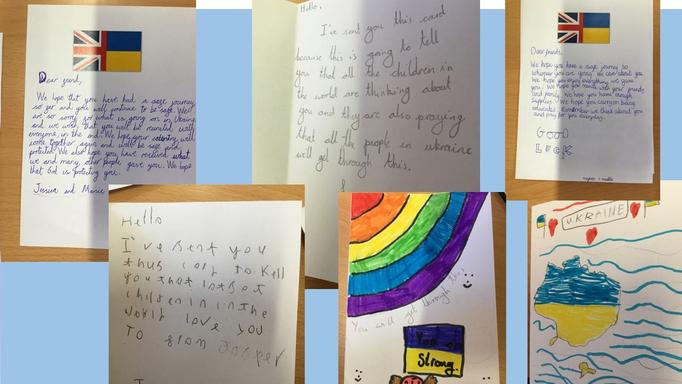 Dear friend,
We hope that you have had a safe journey
so far and you will continue to be safe. We
are so sorry for what is going on in Ukraine
and we wish that you will be reunited with
everyone in the end. We hope your country will
come together again and will be safe and
protected. We also hope you have received what
we and many other people gave you. We hope
that God is protecting you.
Jessica and
Hello,
I've sent you this card
because this is going to tell
you that all the children in
the world are thinking about
you and they are also praying
that all the people in ukraine
will get through this.
Dear friends,
We hope you have a safe journey to
wherever you are going. We care about you.
We hope you enjoy everything we gave
you. We hope you meet with your friends
and family. We hope you have enough
supplies. We hope you carry on being
educated. Remember we think about you
and pray for you everyday.
GOOD
LUCK
Hello
I've sent you
thus card to tell
you that lots of
children in the
world love you
To from Jasper
I
You will get through this
You are
Strong.
UKRAINE